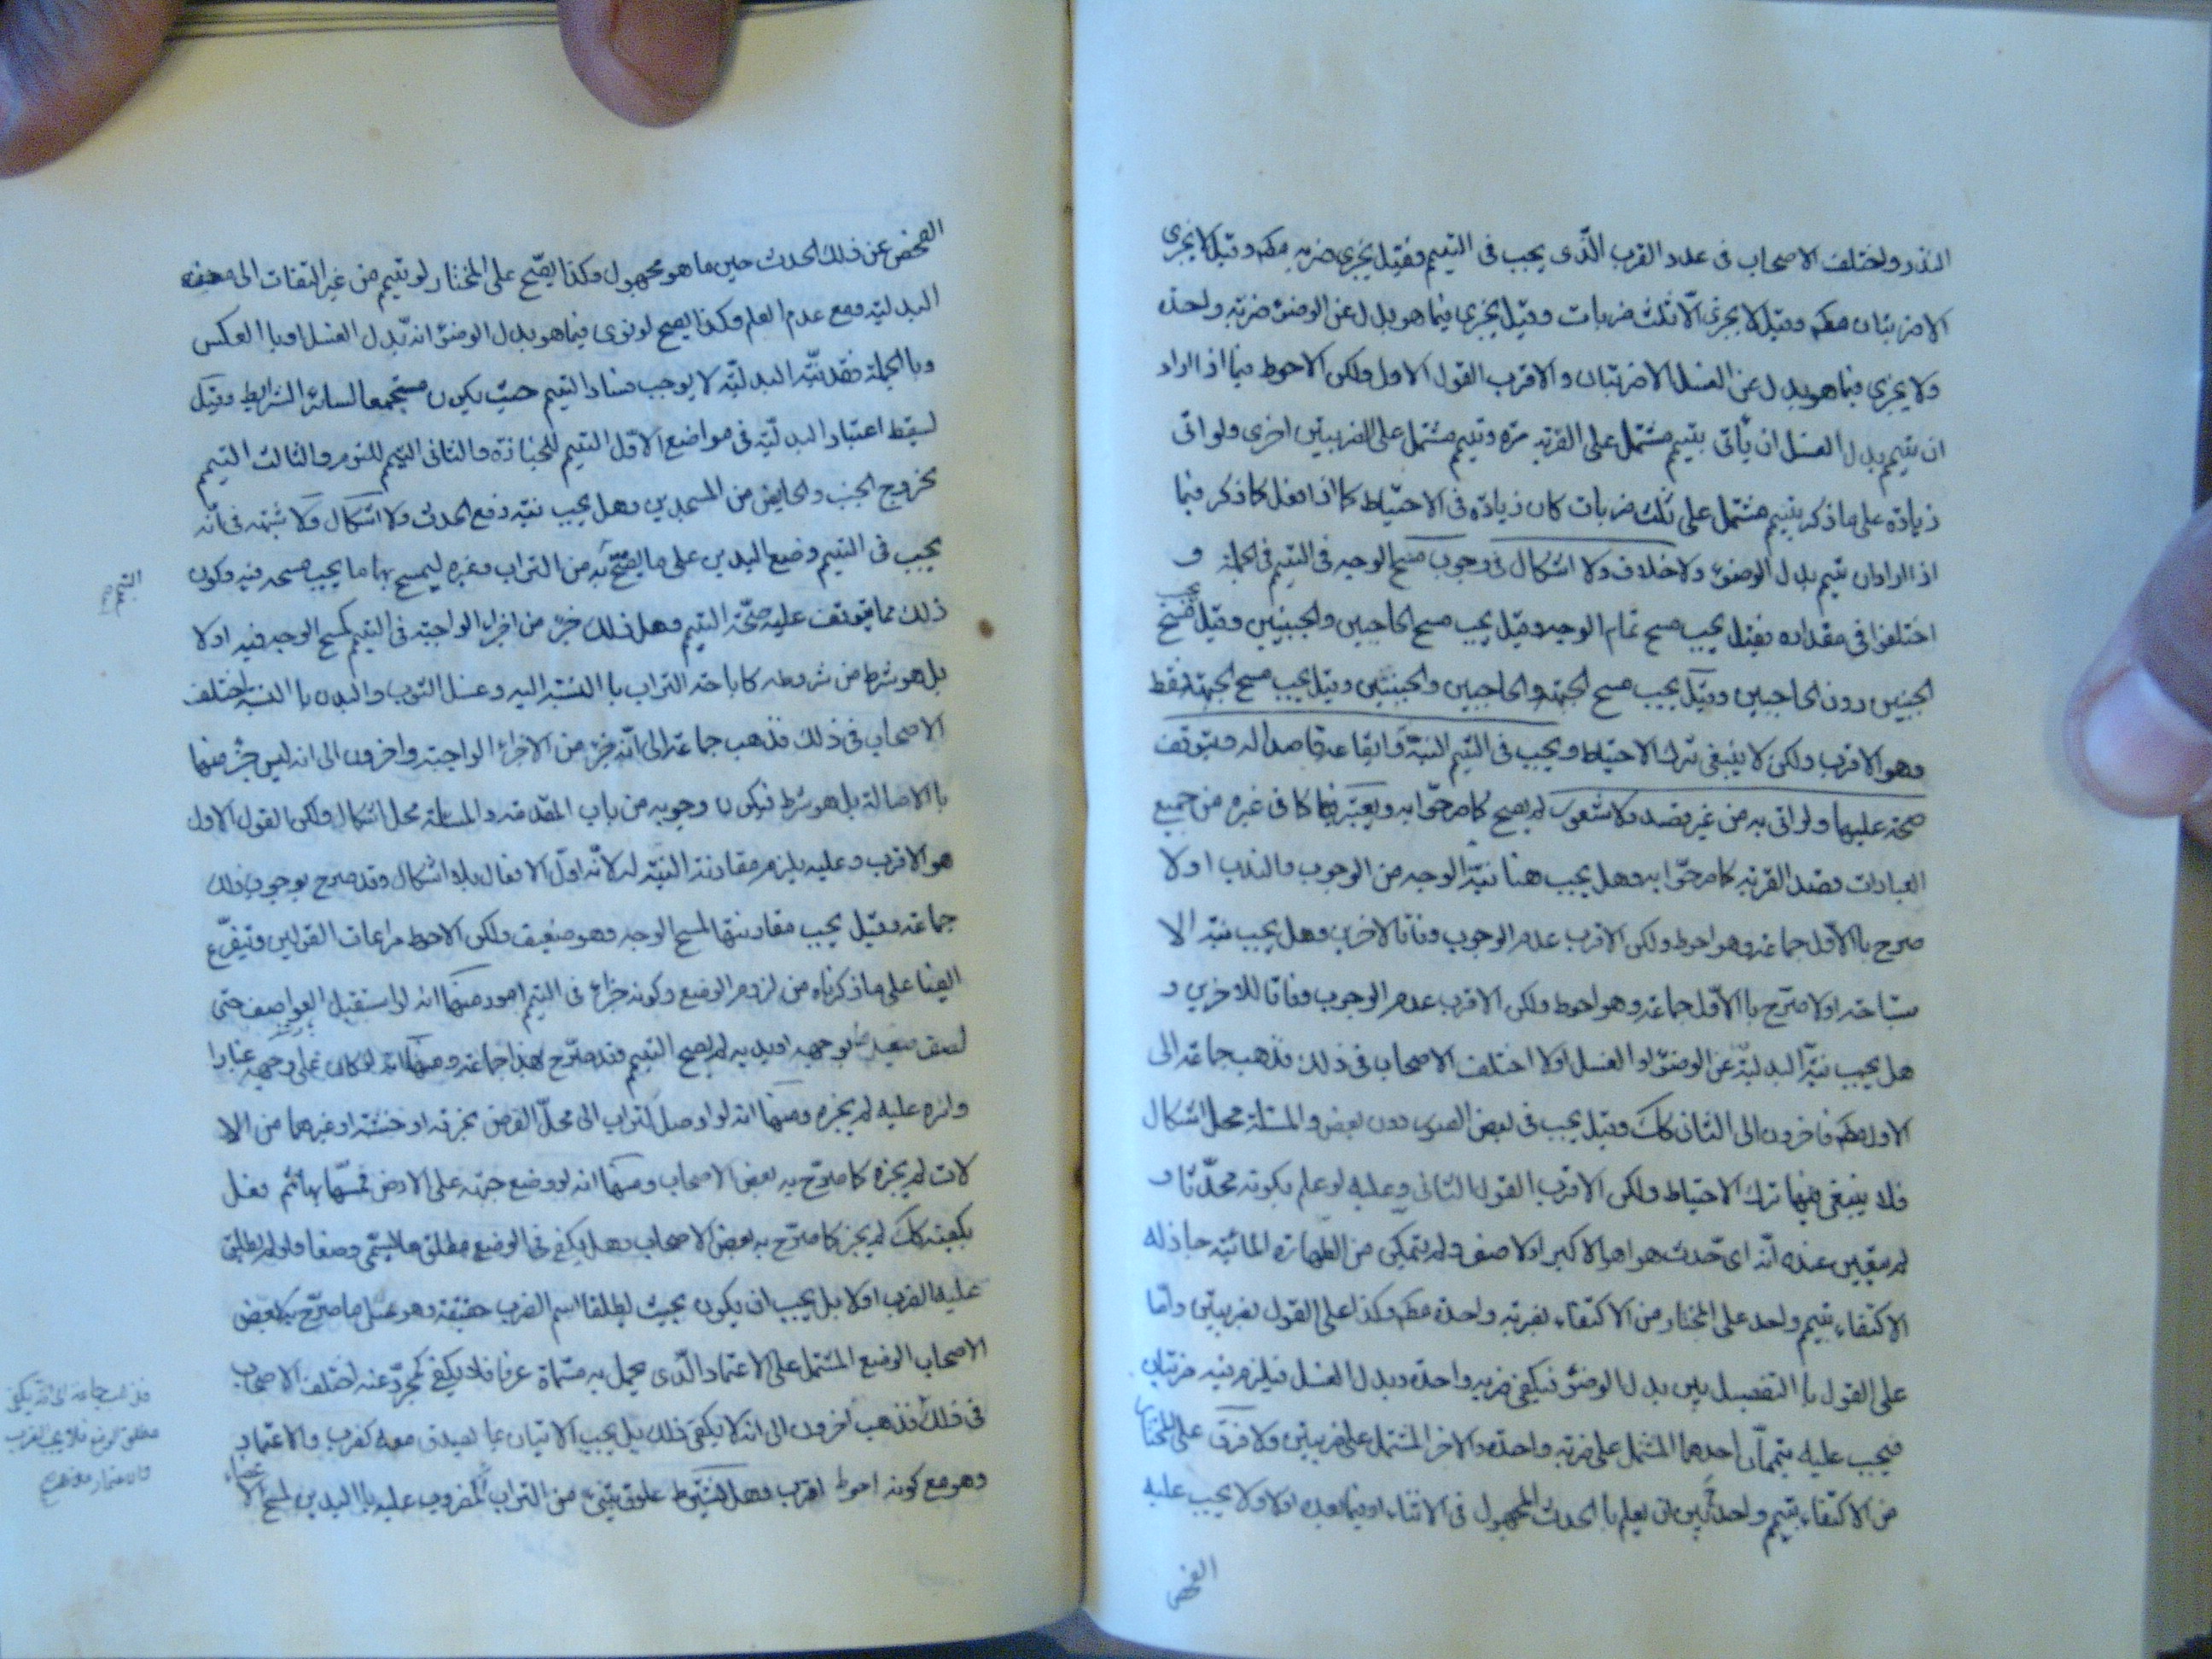 النذر واختلف الاصحاب فى عدد الضرب الّذى يجب فى التيمم فقيل يجزى ضربه مطم وقيل لا يجزى
الا ضربتان مطم وقيل لا يجزى الّا ثلث ضربات وقيل يجزى فيما هو بدل عن الوضوء ضربة واحدة
ولا يجزى فيما هو بدل عن الغسل الا ضربتان والاقرب القول الاول ولكن الاحوط فيما اذا اراد
ان يتيمم بدل الغسل ان يأتى بتيمم مشتمل على الضربة مرّة وتيمم مشتمل على الضربتين اخرى ولو اتى
زيادة على ما ذكر بتيمم مشتمل على ثلث ضربات كان زيادة فى الاحتياط كما اذا فعل كما ذكر فيما
اذا اراد ان يتيمم بدل الوضوء ولا خلاف ولا اشكال فى وجوب مسح الوجه فى التيمم فى الجملة و
اختلفوا فى مقداره فقيل يجب مسح تمام الوجه وقيل يجب مسح الحاجبين والجبينين وقيل يجب مسح
الجبينين دون الحاجبين وقيل يجب مسح الجبهة والحاجبين والجبينين وقيل يجب مسح الجبهة فقط
وهو الاقرب ولكن لا ينبغى ترك الاحتياط ويجب فى التيمم النيّة وايقاعه قاصدا له ويتوقف
صحته عليها ولو اتى به من غير قصد ولا شعور لم يصح كما صرحّوا به ويعتبر فيها كما فى غيره من جميع
العبادات قصد القربة كما صرحّوا به وهل يجب هنا نيّة الوجه من الوجوب والندب اولا
صرح بالاوّل جماعة وهو احوط ولكن الاقرب عدم الوجوب وفاقا لاخرين وهل يجب نيّة الا
ستباحة اولا صرّح بالاوّل جماعة وهو احوط ولكن الاقرب عدم الوجوب وفاقا للاخرين و
هل يجب نيّة البدليّة عن الوضوء او الغسل اولا اختلف الاصحاب فى ذلك فذهب جماعة الى
الاول مطم واخرون الى الثانى كك وقيل يجب فى بعض الصور دون بعض والمسئلة محل اشكال
فلا ينبغى فيها ترك الاحتياط ولكن الاقرب القول الثانى وعليه لو علم بكونه محدّثا و
لم يتعيّن عنده انّه اى حدث هو اهو الاكبر او الاصغر ولم يتمكن من الطهارة المائيّة جاز له
الاكتفاء بتيمم واحد على المختار من الاكتفاء بضربة واحدة مطم وكذا على القول بضربتين وامّا
على القول بالتفصيل بين بدل الوضوء فيكفى ضربة واحدة وبدل الغسل فيلزم فيه ضربتان
فيجب عليه تيممان احدهما المشتمل على ضربة واحدة والاخر المشتمل على ضربتين ولا فرق على المختار
من الاكتفاء بتيمم واحد بين ان يعلم بالحدث المجهول فى الاثناء او فيما بعده اولا ولا يجب عليه
الفحص
الفحص عن ذلك الحدث حين ما هو مجهول وكذا يصّح على المختار لو تيمم من غير التفات الى
البدليّة ومع عدم العلم وكذا يصح لو نوى فيما هو بدل الوضوء انه بدل الغسل او بالعكس
وبالجملة فقد نيّة البدليّة لا يوجب فساد التيمم حيث يكون مستجمعا لسائر الشرايط وقيل
يسقط اعتبار البدليّة فى مواضع الاوّل التيمم للجنازة والثانى التيمم للنوم والثالث التيمم
لخروج الجنب والحايض من المسجدين وهل يجب نيّة رفع الحدث ولا اشكال ولا شبهه فى انّه
يجب فى التيمم وضع اليدين على ما يصّح به من التراب وغيره ليمسح بها ما يجب مسحه فيه وكون
ذلك مما يتوقف عليه صحّة التيمم وهل ذلك جزء من اجزاء الواجبة فى التيمم كمسح الوجه فيه اولا
بل هو شرط من شروطه كاباحة التراب بالنسبة اليه وغسل الثوب والبدن بالنسبة اختلف
الاصحاب فى ذلك فذهب جماعة الى انّه جزء من الاجزاء الواجبة واخرون الى انه ليس جزء منها
بالاصالة بل هو شرط فيكون وجوبه من باب المقدمة والمسئلة محل اشكال ولكن القول الاول
هو الاقرب وعليه يلزم مقارنة النيّة له لانّه اوّل الافعال بلا اشكال وقد صرح بوجوب ذلك
جماعة وقيل يجب مقارنتها لمسح الوجه وهو ضعيف ولكن الاحوط مراعات القولين ويتفرّع
ايضا على ما ذكرناه من لزوم الوضع وكونه جزاء فى التيمم امور منها انه لو استقبل العواصف حتى
لصق صعيد بوجهه او يديه لم يصح التيمم وقد صرّح بهذا جماعة ومنها انه لو كان على وجهه غبارا
ولم يره عليه لم يجزه ومنها انه لو اوصل التراب الى محلّ الفرض بخرقة او خشبة او غيرهما من الا
لات لم يجزه كما صرّح به بعض الاصحاب ومنها انه لو وضع جبهته على الارض فمسّها بها ثم فعل
بكفيه كك لم يجز كما صرّح به بعض الاصحاب وهل يكفى فى الوضع مطلق ما يسمّى وضعا ولو لم يطلق
عليه الضرب اولا بل يجب ان يكون بحيث يطلق اسم الضرب حقيقة وهو على ما صرّح به بعض
الاصحاب الوضع المشتمل على الاعتماد الّذى يحصل به مسّماه عرفا فلا يكفى المجرّد عنه اختلف الاصحاب
فى ذلك فذهب اخرون الى انه لا يكفى ذلك بل يجب الاتيان بما يصدق معه كضرب والاعتماد
وهو مع كونه احوط اقرب وهل يشترط علوق شىء من التراب المضروب عليه باليدين لمسح الاعضاء
التيمم
فذهب جماعة الى انّه يكفى
مطلق الوضع فلا يجب الضرب